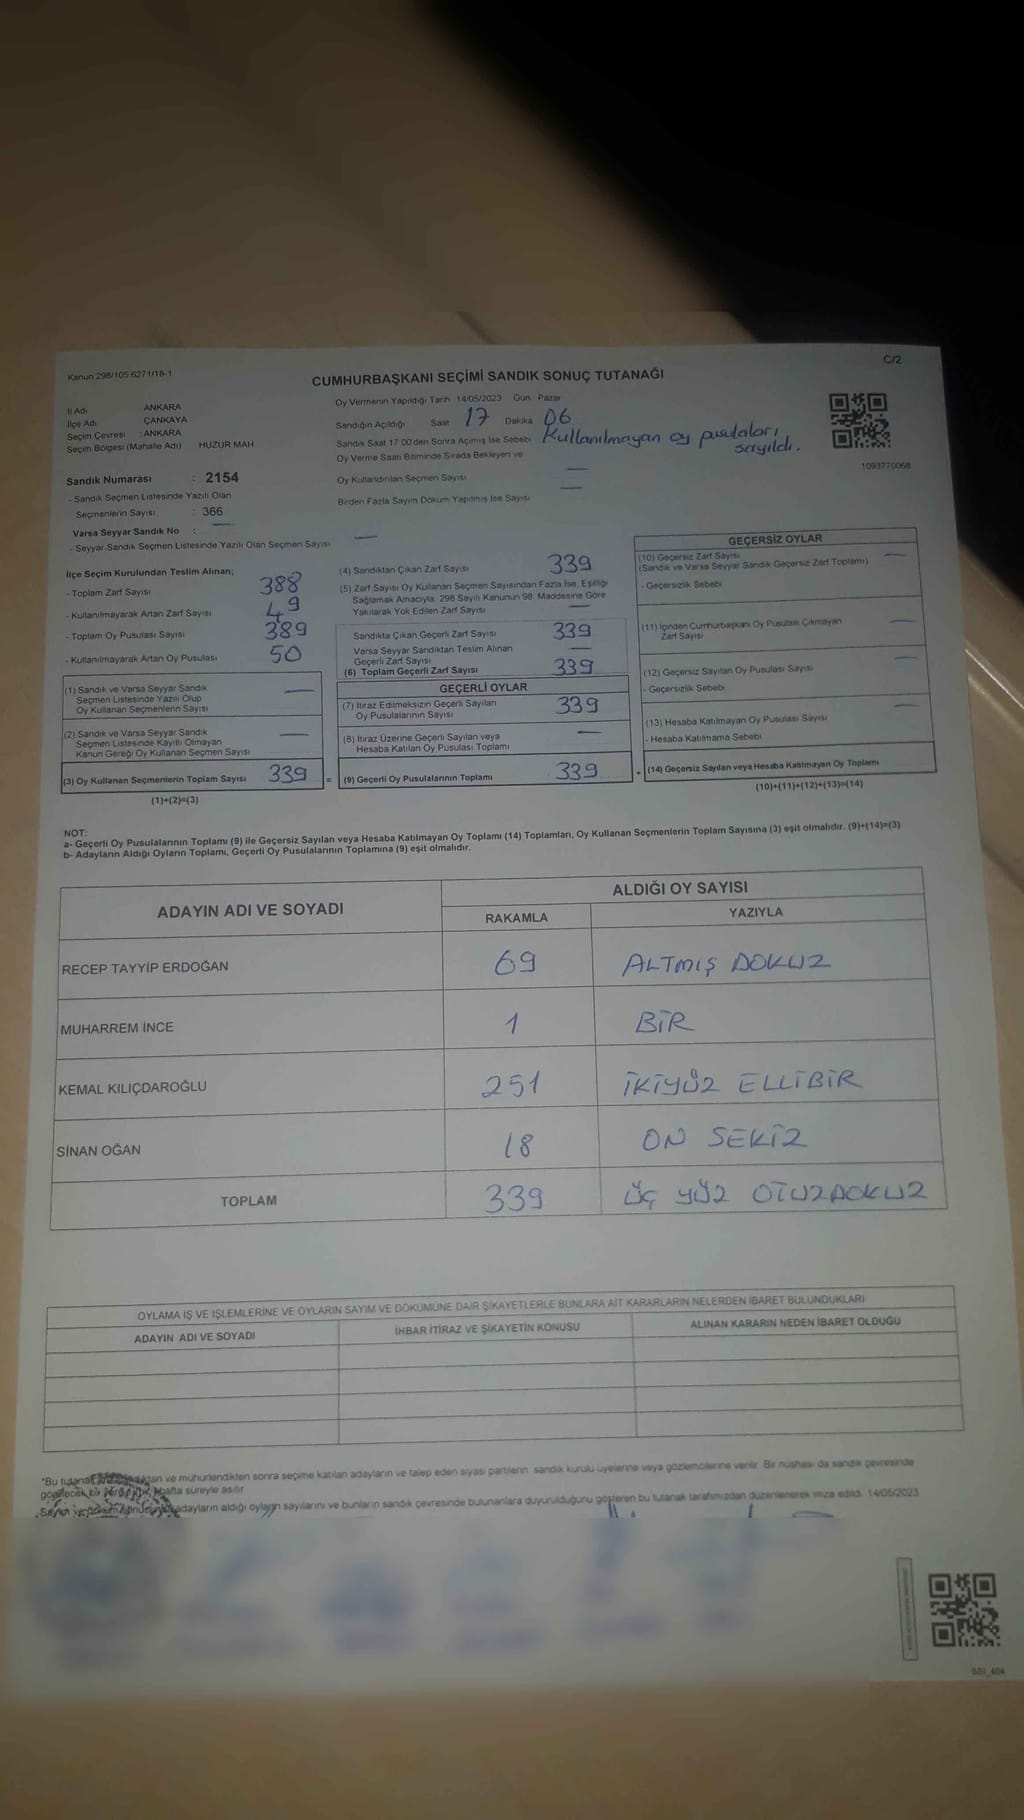 C/2
Kanun 298/105 6271/18-1
CUMHURBAŞKANI SEÇİMİ SANDIK SONUÇ TUTANAĞI
İl Adı ANKARA
İlçe Adı ÇANKAYA
Seçim Çevresi : ANKARA
Seçim Bölgesi (Mahalle Adı) HUZUR MAH.
Sandık Numarası : 2154
- Sandık Seçmen Listesinde Yazılı Olan
Seçmenlerin Sayısı : 366
Varsa Seyyar Sandık No : —
- Seyyar Sandık Seçmen Listesinde Yazılı Olan Seçmen Sayısı —
Oy Vermenin Yapıldığı Tarih 14/05/2023 Gün Pazar
Sandığın Açıldığı Saat 17 Dakika 06
Sandık Saat 17.00'den Sonra Açılmış İse Sebebi Kullanılmayan oy pusulaları
sayıldı.
Oy Verme Saati Bitiminde Sırada Bekleyen ve
Oy Kullandırılan Seçmen Sayısı —
Birden Fazla Sayım Döküm Yapılmış İse Sayısı —
1093770068
İlçe Seçim Kurulundan Teslim Alınan;
- Toplam Zarf Sayısı 388
- Kullanılmayarak Artan Zarf Sayısı 49
- Toplam Oy Pusulası Sayısı 389
- Kullanılmayarak Artan Oy Pusulası 50
(1) Sandık ve Varsa Seyyar Sandık
Seçmen Listesinde Yazılı Olup
Oy Kullanan Seçmenlerin Sayısı —
(2) Sandık ve Varsa Seyyar Sandık
Seçmen Listesinde Kayıtlı Olmayan
Kanun Gereği Oy Kullanan Seçmen Sayısı —
(3) Oy Kullanan Seçmenlerin Toplam Sayısı 339 =
(1)+(2)=(3)
(4) Sandıktan Çıkan Zarf Sayısı 339
(5) Zarf Sayısı Oy Kullanan Seçmen Sayısından Fazla İse, Eşitliği
Sağlamak Amacıyla, 298 Sayılı Kanunun 98. Maddesine Göre
Yakılarak Yok Edilen Zarf Sayısı —
Sandıkta Çıkan Geçerli Zarf Sayısı 339
Varsa Seyyar Sandıktan Teslim Alınan
Geçerli Zarf Sayısı —
(6) Toplam Geçerli Zarf Sayısı 339
GEÇERLİ OYLAR
(7) İtiraz Edilmeksizin Geçerli Sayılan
Oy Pusulalarının Sayısı 339
(8) İtiraz Üzerine Geçerli Sayılan veya
Hesaba Katılan Oy Pusulası Toplamı —
(9) Geçerli Oy Pusulalarının Toplamı 339 +
GEÇERSİZ OYLAR
(10) Geçersiz Zarf Sayısı —
(Sandık ve Varsa Seyyar Sandık Geçersiz Zarf Toplamı)
- Geçersizlik Sebebi
(11) İçinden Cumhurbaşkanı Oy Pusulası Çıkmayan
Zarf Sayısı —
(12) Geçersiz Sayılan Oy Pusulası Sayısı —
- Geçersizlik Sebebi
(13) Hesaba Katılmayan Oy Pusulası Sayısı —
- Hesaba Katılmama Sebebi
(14) Geçersiz Sayılan veya Hesaba Katılmayan Oy Toplamı
(10)+(11)+(12)+(13)=(14)
NOT:
a- Geçerli Oy Pusulalarının Toplamı (9) ile Geçersiz Sayılan veya Hesaba Katılmayan Oy Toplamı (14) Toplamları, Oy Kullanan Seçmenlerin Toplam Sayısına (3) eşit olmalıdır. (9)+(14)=(3)
b- Adayların Aldığı Oyların Toplamı, Geçerli Oy Pusulalarının Toplamına (9) eşit olmalıdır.
ADAYIN ADI VE SOYADI ALDIĞI OY SAYISI
RAKAMLA YAZIYLA
RECEP TAYYİP ERDOĞAN 69 ALTMIŞ DOKUZ
MUHARREM İNCE 1 BİR
KEMAL KILIÇDAROĞLU 251 İKİYÜZ ELLİBİR
SİNAN OĞAN 18 ON SEKİZ
TOPLAM 339 ÜÇ YÜZ OTUZDOKUZ
OYLAMA İŞ VE İŞLEMLERİNE VE OYLARIN SAYIM VE DÖKÜMÜNE DAİR ŞİKAYETLERLE BUNLARA AİT KARARLARIN NELERDEN İBARET BULUNDUKLARI
ADAYIN ADI VE SOYADI İHBAR İTİRAZ VE ŞİKAYETİN KONUSU ALINAN KARARIN NEDEN İBARET OLDUĞU
*Bu ve mühürlendikten sonra seçime katılan adayların ve talep eden siyasi partilerin, sandık kurulu üyelerine veya gözlemcilerine verilir. Bir nüshası da sandık çevresinde
görülecek bir hafta süreyle asılır.
adayların aldığı oyların sayılarını ve bunların sandık çevresinde bulunanlara duyurulduğunu gösteren bu tutanak tarafımızdan düzenlenerek imza edildi. 14/05/2023